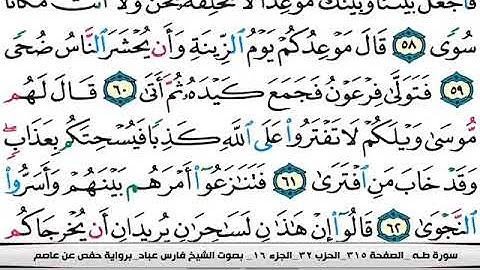 فَٱجْعَلْ بَيْنَنَا وَبَيْنَكَ مَوْعِدًا لَّا نُخْلِفُهُۥ نَحْنُ وَلَآ أَنتَ مَكَانًا
سُوًى ٥٨ قَالَ مَوْعِدُكُمْ يَوْمُ ٱلزِّينَةِ وَأَن يُحْشَرَ ٱلنَّاسُ ضُحًى
٥٩ فَتَوَلَّىٰ فِرْعَوْنُ فَجَمَعَ كَيْدَهُۥ ثُمَّ أَتَىٰ ٦٠ قَالَ لَهُم
مُّوسَىٰ وَيْلَكُمْ لَا تَفْتَرُوا۟ عَلَى ٱللَّهِ كَذِبًا فَيُسْحِتَكُم بِعَذَابٍ ۖ
وَقَدْ خَابَ مَنِ ٱفْتَرَىٰ ٦١ فَتَنَـٰزَعُوٓا۟ أَمْرَهُم بَيْنَهُمْ وَأَسَرُّوا۟
ٱلنَّجْوَىٰ ٦٢ قَالُوٓا۟ إِنْ هَـٰذَٰنِ لَسَـٰحِرَٰنِ يُرِيدَانِ أَن يُخْرِجَاكُم
سورة طـه _ الصفحة ٣١٥_ الحزب ٣٢_ الجزء ١٦ _ بصوت الشيخ فارس عباد_ برواية حفص عن عاصم